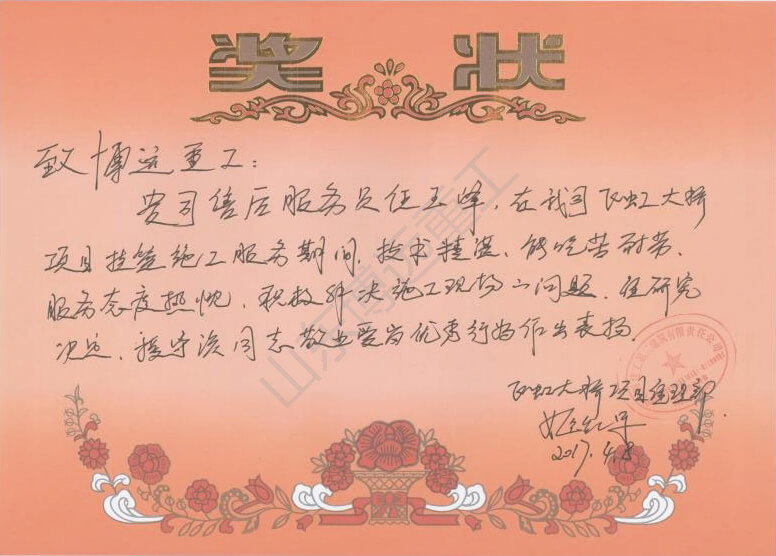 奖状
致博远重工:
贵司售后服务员任玉峰,在我司飞虹大桥
项目挂篮施工服务期间,技术精湛、能吃苦耐劳、
服务态度热忱,积极解决施工现场问题,经研究
决定,授予该同志敬业爱岗优秀行为作出表扬.
飞虹大桥项目经理部
2017.4.8
山东博远重工